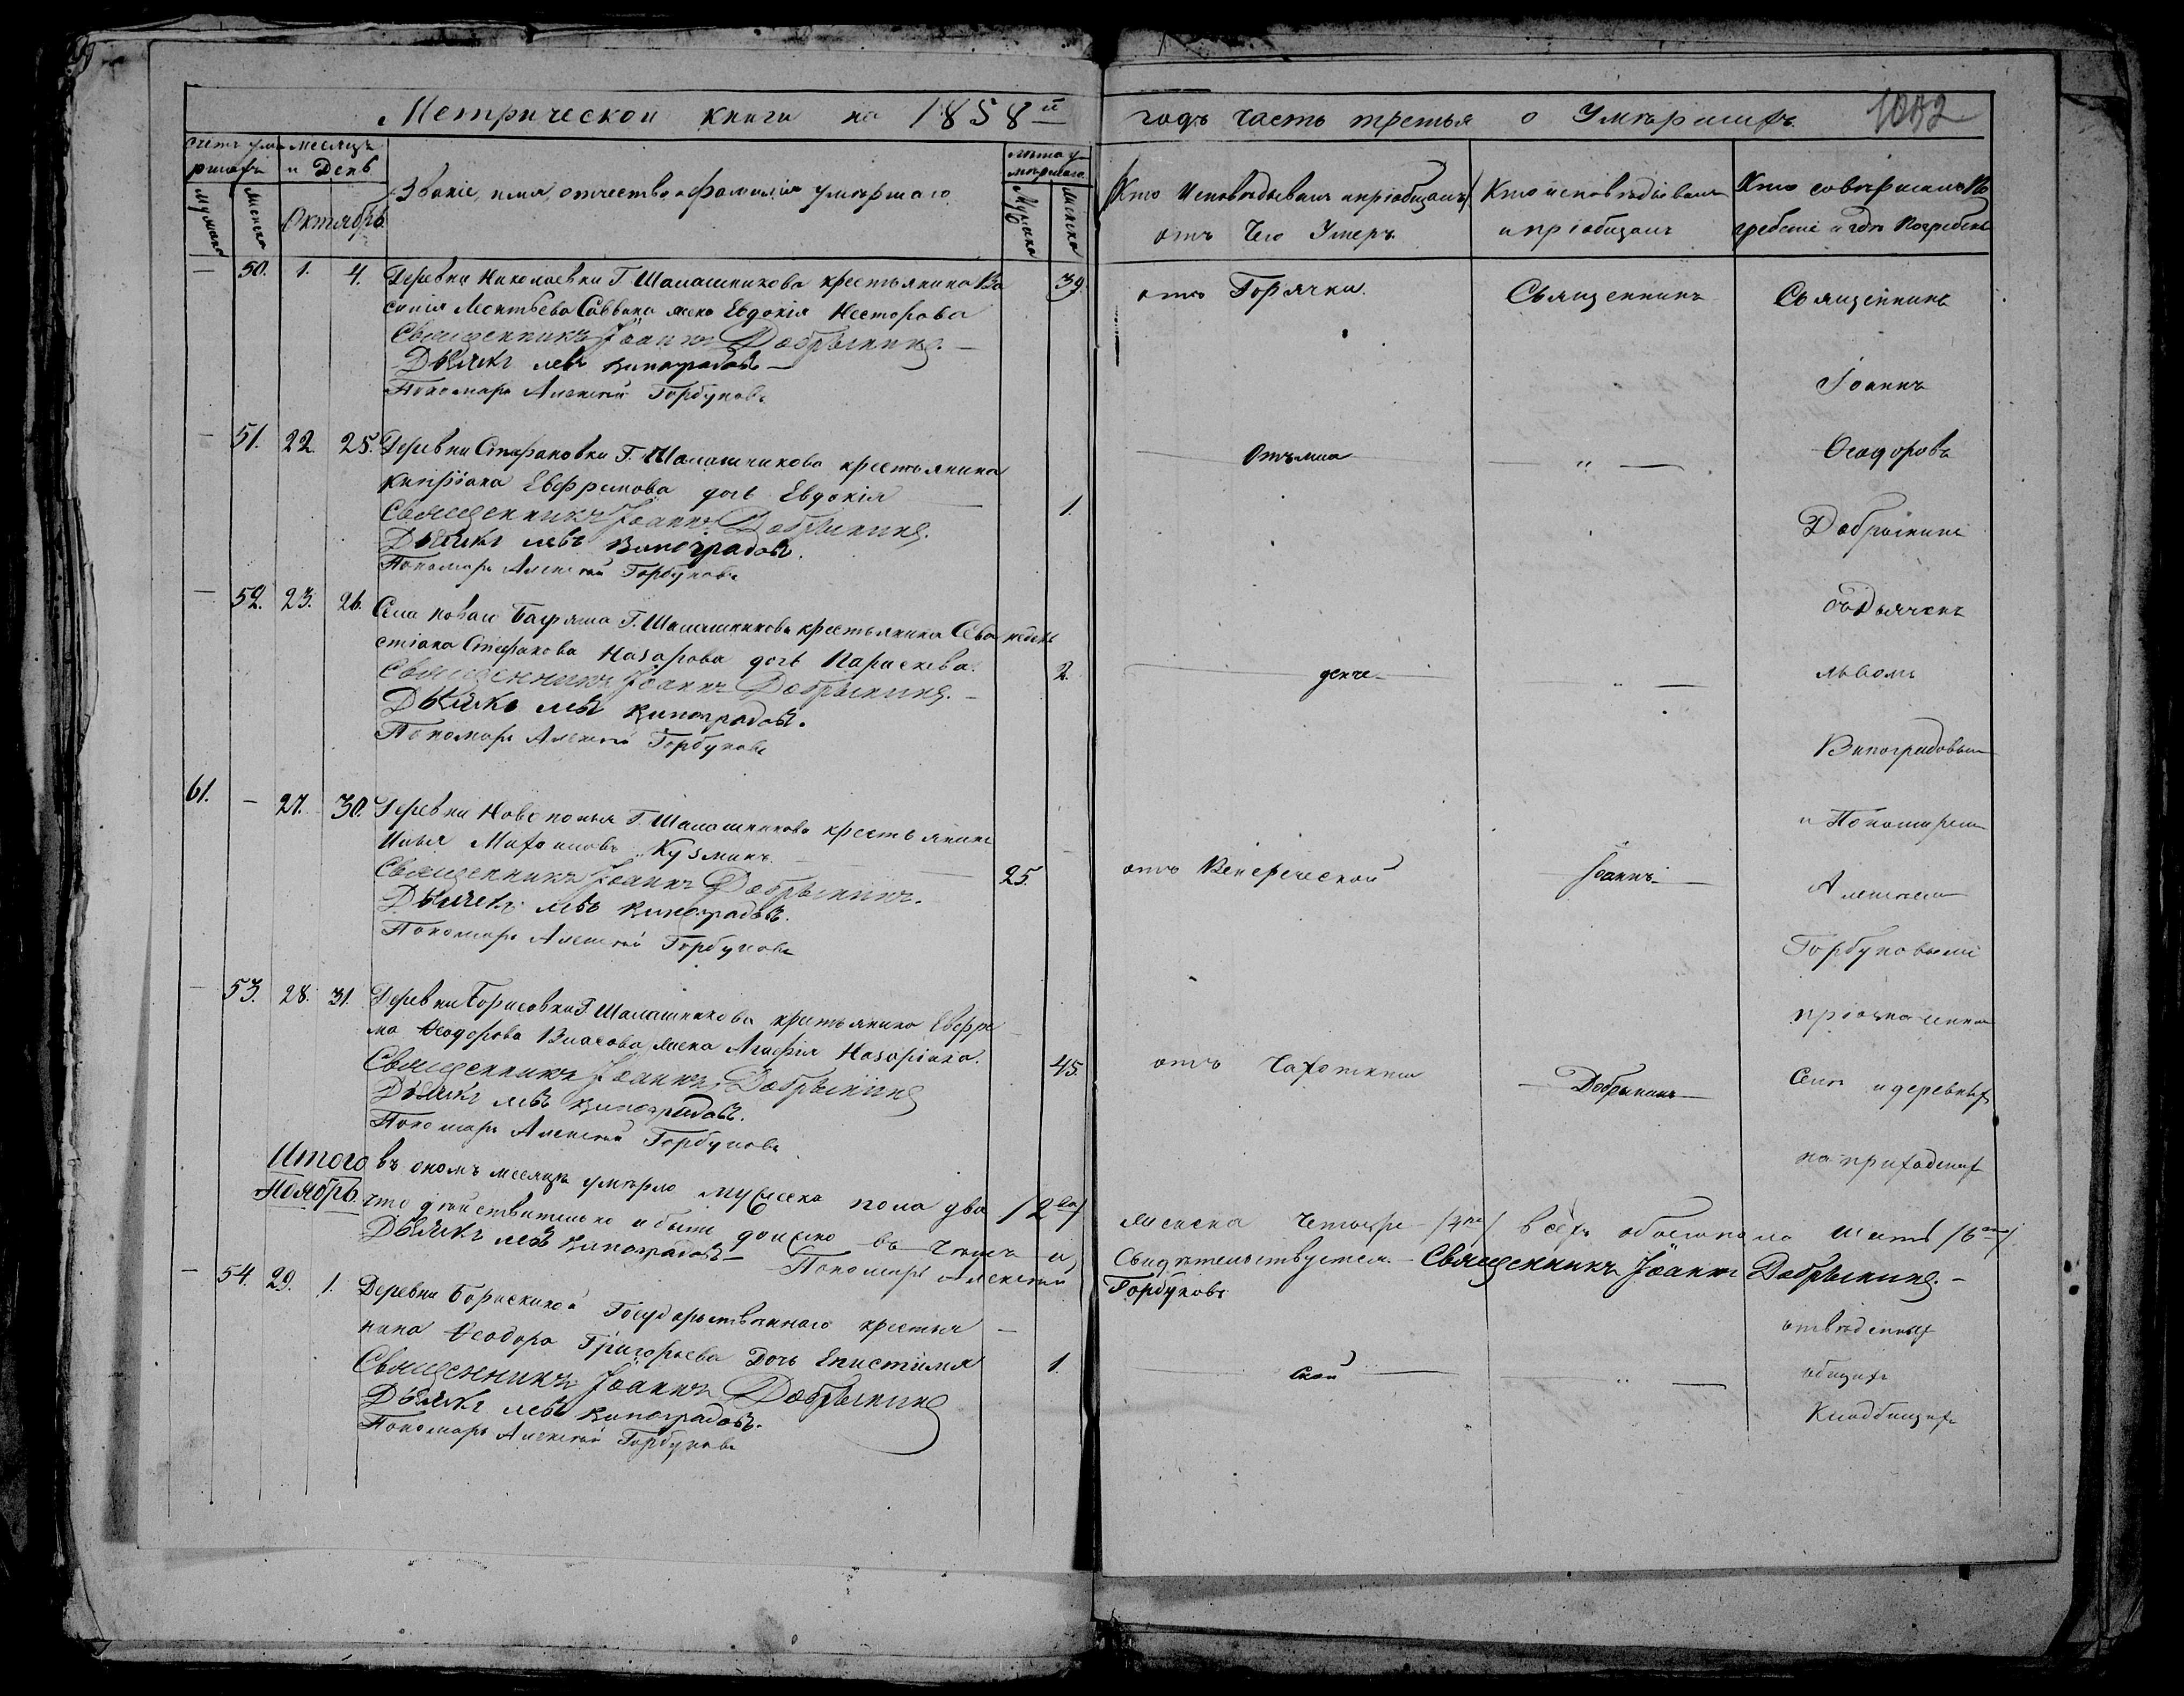 Метрической книги на 1858й годъ часть третья о Умѣршихъ.
1002
Счетъ умѣршихъ
Месяцъ и День
Октябрь
Мужска
Женска
Званіе, имя, отчество и фамилія умѣршаго
Лѣта умѣршаго
Мужска
Женска
отъ Чего Умеръ
Кто исповѣдывалъ
и пріобщалъ
Кто совѣршалъ По
гребеніе и гдѣ Погребены
— 50. 1. 4. Деревни Николаевки Г. Шалашникова крестьянина Ва
силія Леонтьева Саввина жена Евдокія Несторова 39.
Священникъ Іоаннъ Добрынинъ. —
Дьячекъ левъ виноградовъ —
Пономарь Алексѣй Горбуновъ
отъ Горячки.
Священникъ
Священникъ
Іоаннъ
— 51. 22. 25. Деревни Стефановки Г. Шалашникова крестьянина
Кипріана Евфремова дочь Евдокія — 1.
Священникъ Іоаннъ Добрынинъ.
Дьячекъ левъ виноградовъ.
Пономарь Алексѣй Горбуновъ
— „ —
Ѳеодоровъ
Добрынинъ
— 52. 23. 26. Села новаго Г. Шалашникова крестьянина Сева
стіана Стефанова Назарова дочь Параскева. 2.
Священникъ Іоаннъ Добрынинъ. —
Дьячекъ левъ виноградовъ.
Пономарь Алексѣй Горбуновъ
— „ —
съ Дьячкомъ
львомъ
Виноградовымъ
61. — 27. 30. Деревни Г. Шалашникова крестьянинъ
Илья Кузминъ. — 25.
Священникъ Іоаннъ Добрынинъ.
Дьячекъ левъ виноградовъ.
Пономарь Алексѣй Горбуновъ
отъ Венерической
Іоаннъ —
и Пономаремъ
Алексѣемъ
Горбуновымъ
— 53. 28. 31. Деревни Борисовки Г. Шалашникова крестьянина Евфре
ма Ѳеодорова Власова жена Агафія Назаріева. 45.
Священникъ Іоаннъ Добрынинъ
Дьячекъ левъ виноградовъ.
Пономарь Алексѣй Горбуновъ
отъ Чахотки
— Добрынинъ —
Селѣ и деревнѣхъ
на приходскихъ
Итого въ ономъ месяцѣ умѣрло мужеска пола два /2ва/ женска Четыре /4ре/ всѣхъ обоего пола шесть /6ть/
Ноябрь. что дѣйствительно и быти должно въ томъ и свидѣтельствуемъ. — Священникъ Іоаннъ Добрынинъ. —
Дьячекъ левъ виноградовъ — Пономарь Алексѣй Горбуновъ
— 54. 29. 1. Деревни Борискиной Государственнаго крестья —
нина Ѳеодора Григорьева Дочь Епистимія 1.
Священникъ Іоаннъ Добрынинъ
Дьячекъ левъ виноградовъ.
Пономарь Алексѣй Горбуновъ
— ской —
— „ —
отведенныхъ
общихъ
Кладбищахъ